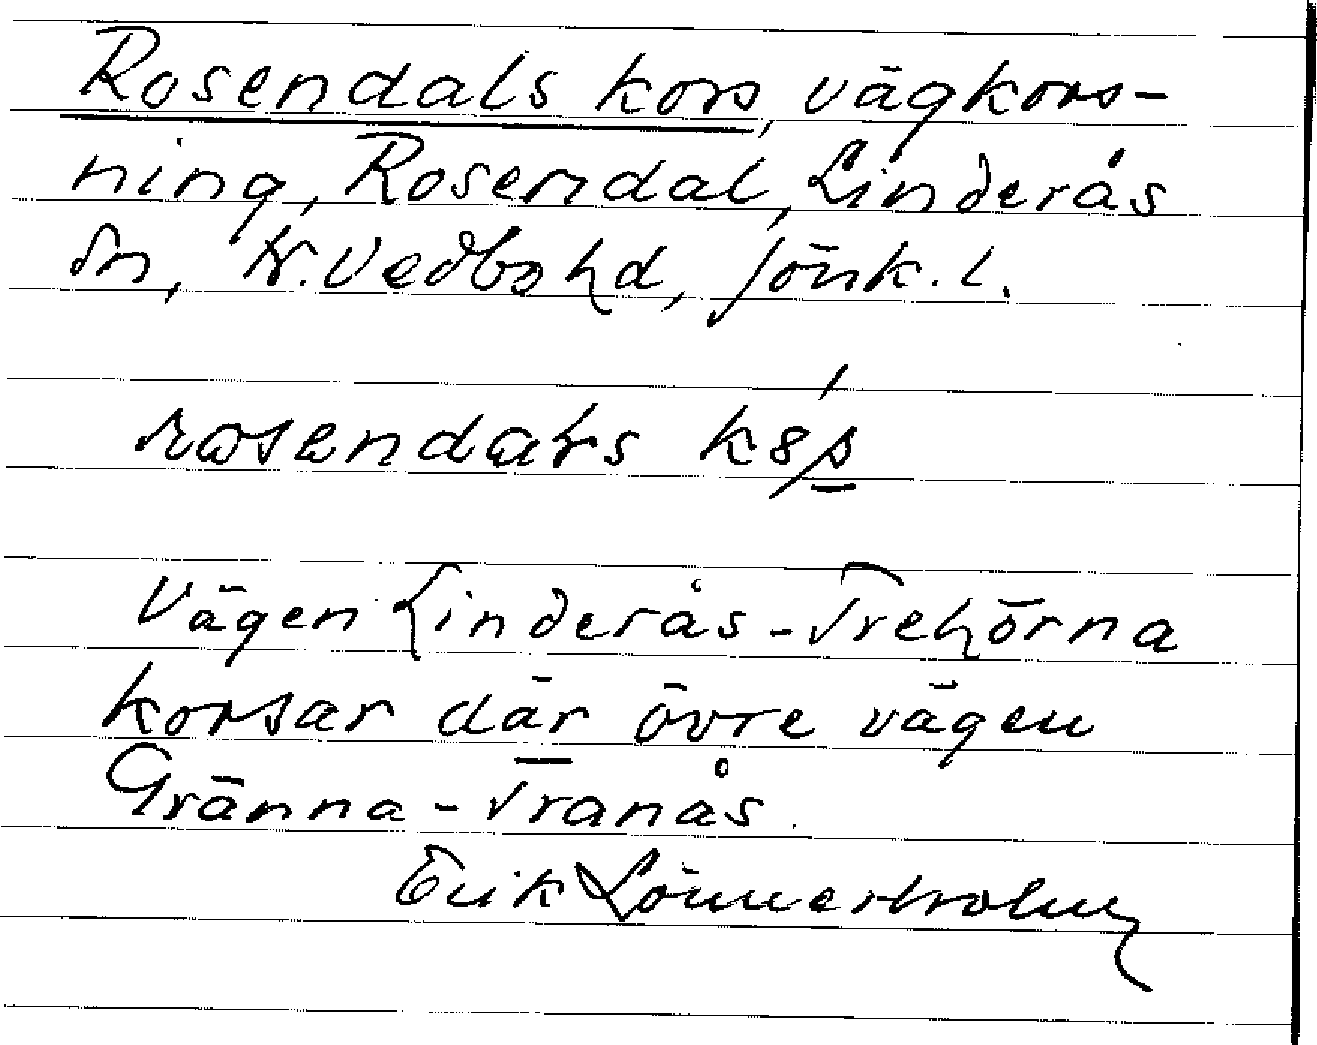 Rosendals kors, vägkors-
ning, Rosendal, Linderås
sn, N. Vedbo hd, Jönk. l.
rosendals
Vägen Linderås - Trehörna
korsar där övre vägen
Gränna - Tranås.
Erik Lönnerholm